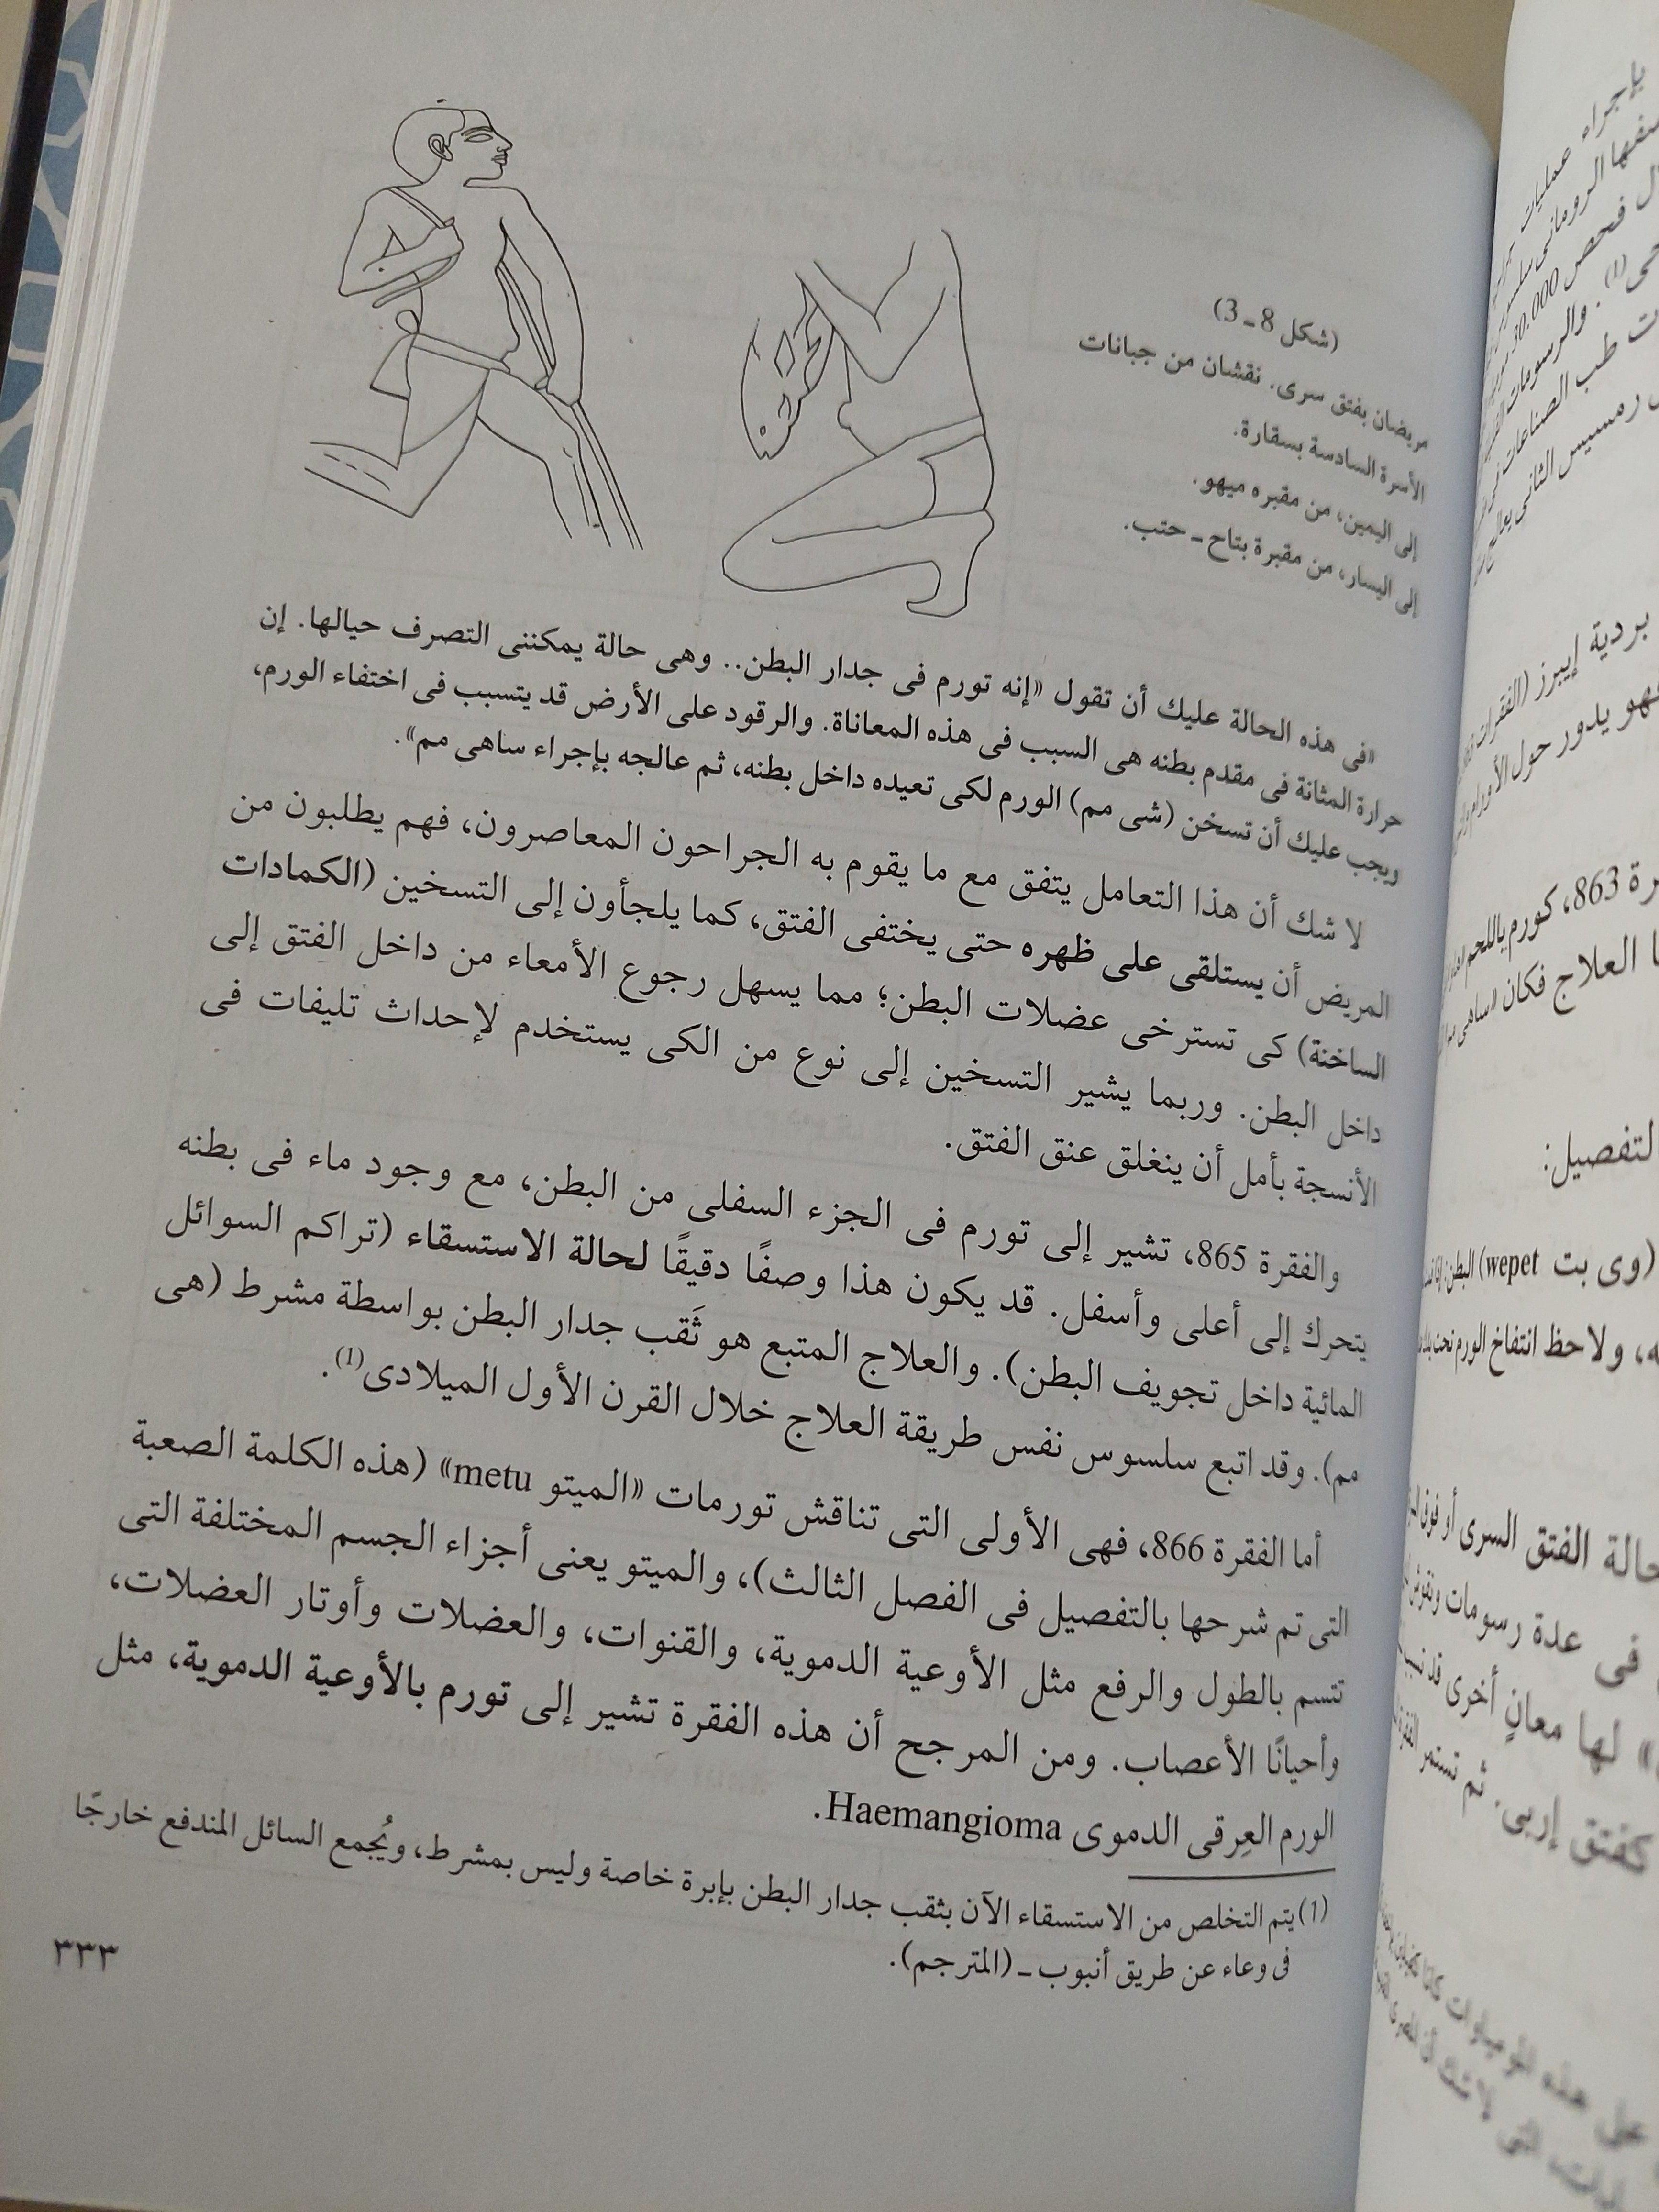 (شكل 8 ـ 3)
مريضان بفتق سرى. نقشان من جبانات
الأسرة السادسة بسقارة.
إلى اليمين، من مقبره ميهو.
إلى اليسار، من مقبرة بتاح ـ حتب.
«فى هذه الحالة عليك أن تقول «إنه تورم فى جدار البطن.. وهى حالة يمكننى التصرف حيالها. إن
حرارة المثانة فى مقدم بطنه هى السبب فى هذه المعاناة. والرقود على الأرض قد يتسبب فى اختفاء الورم،
ويجب عليك أن تسخن (شى مم) الورم لكى تعيده داخل بطنه، ثم عالجه بإجراء ساهى مم».
لا شك أن هذا التعامل يتفق مع ما يقوم به الجراحون المعاصرون، فهم يطلبون من
المريض أن يستلقى على ظهره حتى يختفى الفتق، كما يلجأون إلى التسخين (الكمادات
الساخنة) كى تسترخى عضلات البطن؛ مما يسهل رجوع الأمعاء من داخل الفتق إلى
داخل البطن. وربما يشير التسخين إلى نوع من الكى يستخدم لإحداث تليفات فى
الأنسجة بأمل أن ينغلق عنق الفتق.
والفقرة 865، تشير إلى تورم فى الجزء السفلى من البطن، مع وجود ماء فى بطنه
يتحرك إلى أعلى وأسفل. قد يكون هذا وصفًا دقيقًا لحالة الاستسقاء (تراكم السوائل
المائية داخل تجويف البطن). والعلاج المتبع هو ثَقب جدار البطن بواسطة مشرط (هى
مم). وقد اتبع سلسوس نفس طريقة العلاج خلال القرن الأول الميلادى(1).
أما الفقرة 866، فهى الأولى التى تناقش تورمات «الميتو metu» (هذه الكلمة الصعبة
التى تم شرحها بالتفصيل فى الفصل الثالث)، والميتو يعنى أجزاء الجسم المختلفة التى
تتسم بالطول والرفع مثل الأوعية الدموية، والقنوات، والعضلات وأوتار العضلات،
وأحيانًا الأعصاب. ومن المرجح أن هذه الفقرة تشير إلى تورم بالأوعية الدموية، مثل
الورم العِرقى الدموى Haemangioma.
(1) يتم التخلص من الاستسقاء الآن بثقب جدار البطن بإبرة خاصة وليس بمشرط، ويُجمع السائل المندفع خارجًا
فى وعاء عن طريق أنبوب ـ (المترجم).
٣٣٣
بإجراء عمليات
فحص 30.000
طب الصناعات
رمسيس الثانى يعالج
بردية إيبرز (الفقرات
فهو يدور حول الأورام
863، كورم باللحم
العلاج فكان «ساهى
لتفصيل:
(وى بت wepet) البطن:
ولاحظ انتفاخ الورم تحت
حالة الفتق السرى أو فوق
فى عدة رسومات ونقوش
لها معانٍ أخرى قد
كفتق إربى. ثم تستمر